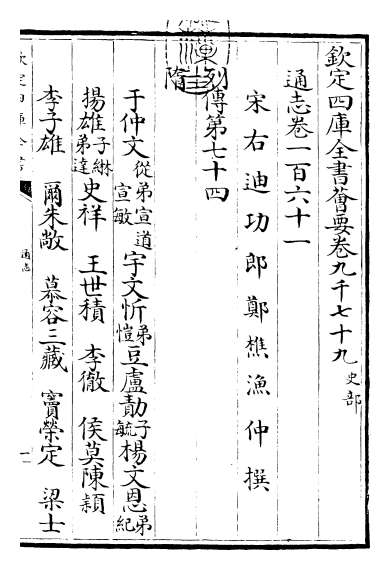 欽定四庫全書薈要卷九千七十九 史部
通志卷一百六十一
宋右迪功郎鄭樵漁仲撰
列傳第七十四
隋
于仲文 從弟宣道 宣敏 宇文忻 弟愷 豆盧勣 子毓 楊文恩 弟紀
揚雄 子綝 弟達 史祥 王世積 李徹 侯莫陳頴
李子雄 爾朱敞 慕容三藏 竇榮定 梁士
欽定四庫全書
通志